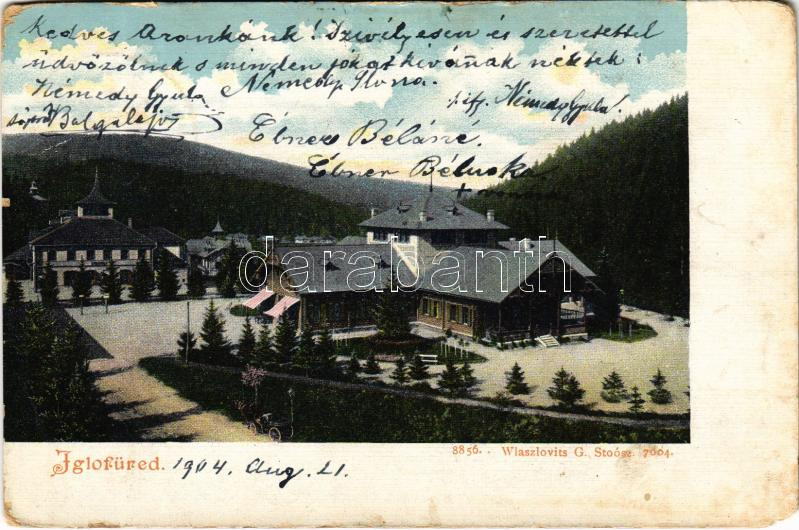 Kedves Aronkánk! Szivélyesen és szeretettel
üdvözölnek s minden jókat kívánnak néktek:
Némedy Gyula Némedy Ilona.
ifj. Némedy Gyula!
Ébner Béláné.
Ébner Béluska
darabanth
Iglófüred. 1904. Aug. 21.
8856. Wlaszlovits G. Stoósz. 7604.